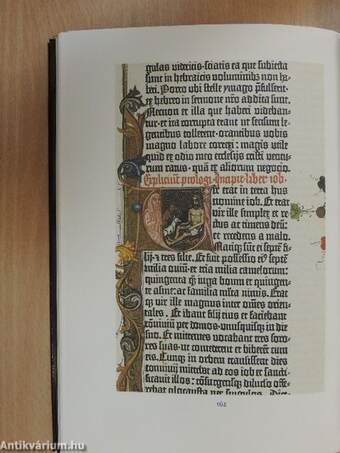 gulas videritis·sciatis ea que subiecta
sunt in hebraicis voluminibus non ha-
beri. Porro ubi stelle ymago p̄fulserit:
ex hebreo in sermone nr̄o addita sunt.
Necnon et illa que habere videban-
tur·et ita corrupta erant ut sensum le-
gentibus tollerent·orantibus vobis
magno labore correxi: magis
utile quid ex ocio meo ecclesijs cristi ventu-
rum ratus·quā ex aliorum negocio.
Expliciunt prologi. Incipit liber iob.
Vir erat in terra hus
nomine iob. Et erat
vir ille simplex et re-
ctus ac timens deum:
et recedens a malo.
Natiqꝫ sunt ei septem
filij·et tres filie. Et fuit possessio eiꝰ septē
milia ouiū·et tria milia camelorum:
quingenta qꝫ iuga boum et quingen-
te asine·ac familia multa nimis. Erat-
qꝫ vir ille magnus inter omnes orien-
tales. Et ibant filij eius et faciebant
conuiuiū per domos·unusquisqꝫ in die
suo. Et mittentes vocabant tres soro-
res suas·ut comederent et biberent cum
eis. Cumqꝫ in orbem transissent dies
conuiuij mittebat ad eos iob et sancti-
ficabat illos: consurgensqꝫ diluculo offe-
rebat holocausta
162
Antikvárium.hu